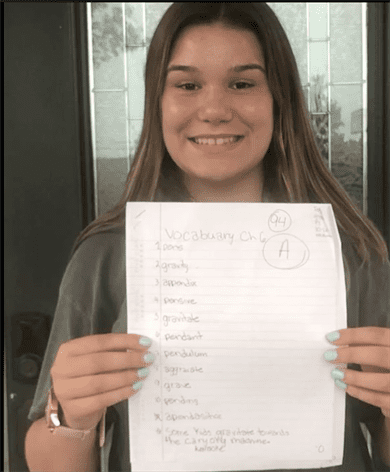 94
Vocabulary Ch 6
A
1. pons
2. gravity
3. appendix
4. pensive
5. gravitate
6. pendant
7. pendulum
8. aggravate
9. grave
10. pending
11.
12. Some kids gravitate towards
the candy machine